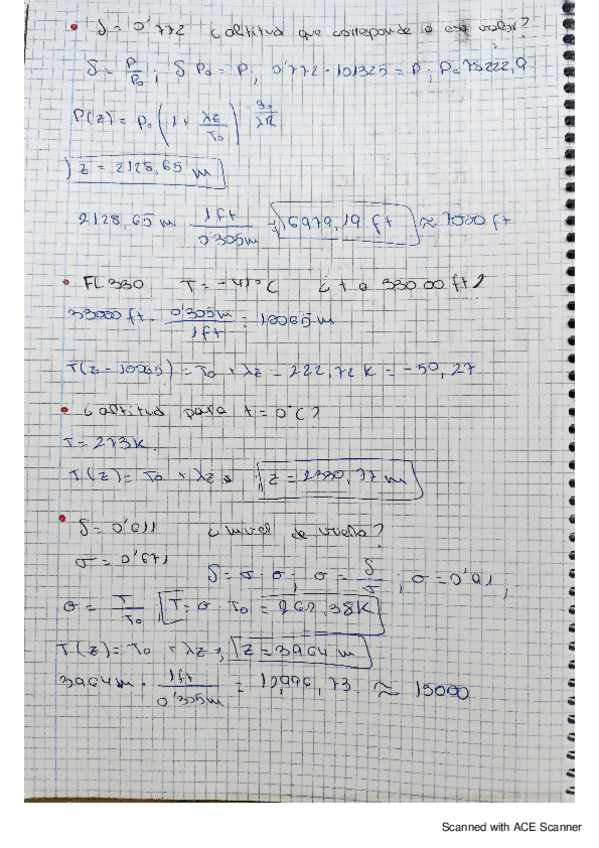 • δ = 0'772 ¿altitud que corresponde a ese valor?
δ = P/P₀ ; δ P₀ = P, 0'772 · 101325 = P ; P = 78222,9
P(z) = P₀ (1 + λz/T₀)^(g₀/λR)
z = 2128,65 m
2128,65 m 1ft/0'305m = 6979,19 ft ≈ 7000 ft
• FL 330 T = -41°C ¿t a 33000 ft?
33000 ft · 0'305m/1ft = 10065 m
T(z = 10065) = T₀ + λz = 222,72 K = -50,27
• ¿altitud para t = 0°C?
T = 273K.
T(z) = T₀ + λz z = m
• δ = 0'611 ¿nivel de vuelo?
σ = 0'671
δ = σ · θ ; θ = δ/σ ; θ = 0'91 ;
θ = T/T₀ ; T = θ · T₀ = 262,38K
T(z) = T₀ + λz ; z = 3964 m
3964 m · 1ft/0'305m = 12996,73 ≈ 13000
Scanned with ACE Scanner